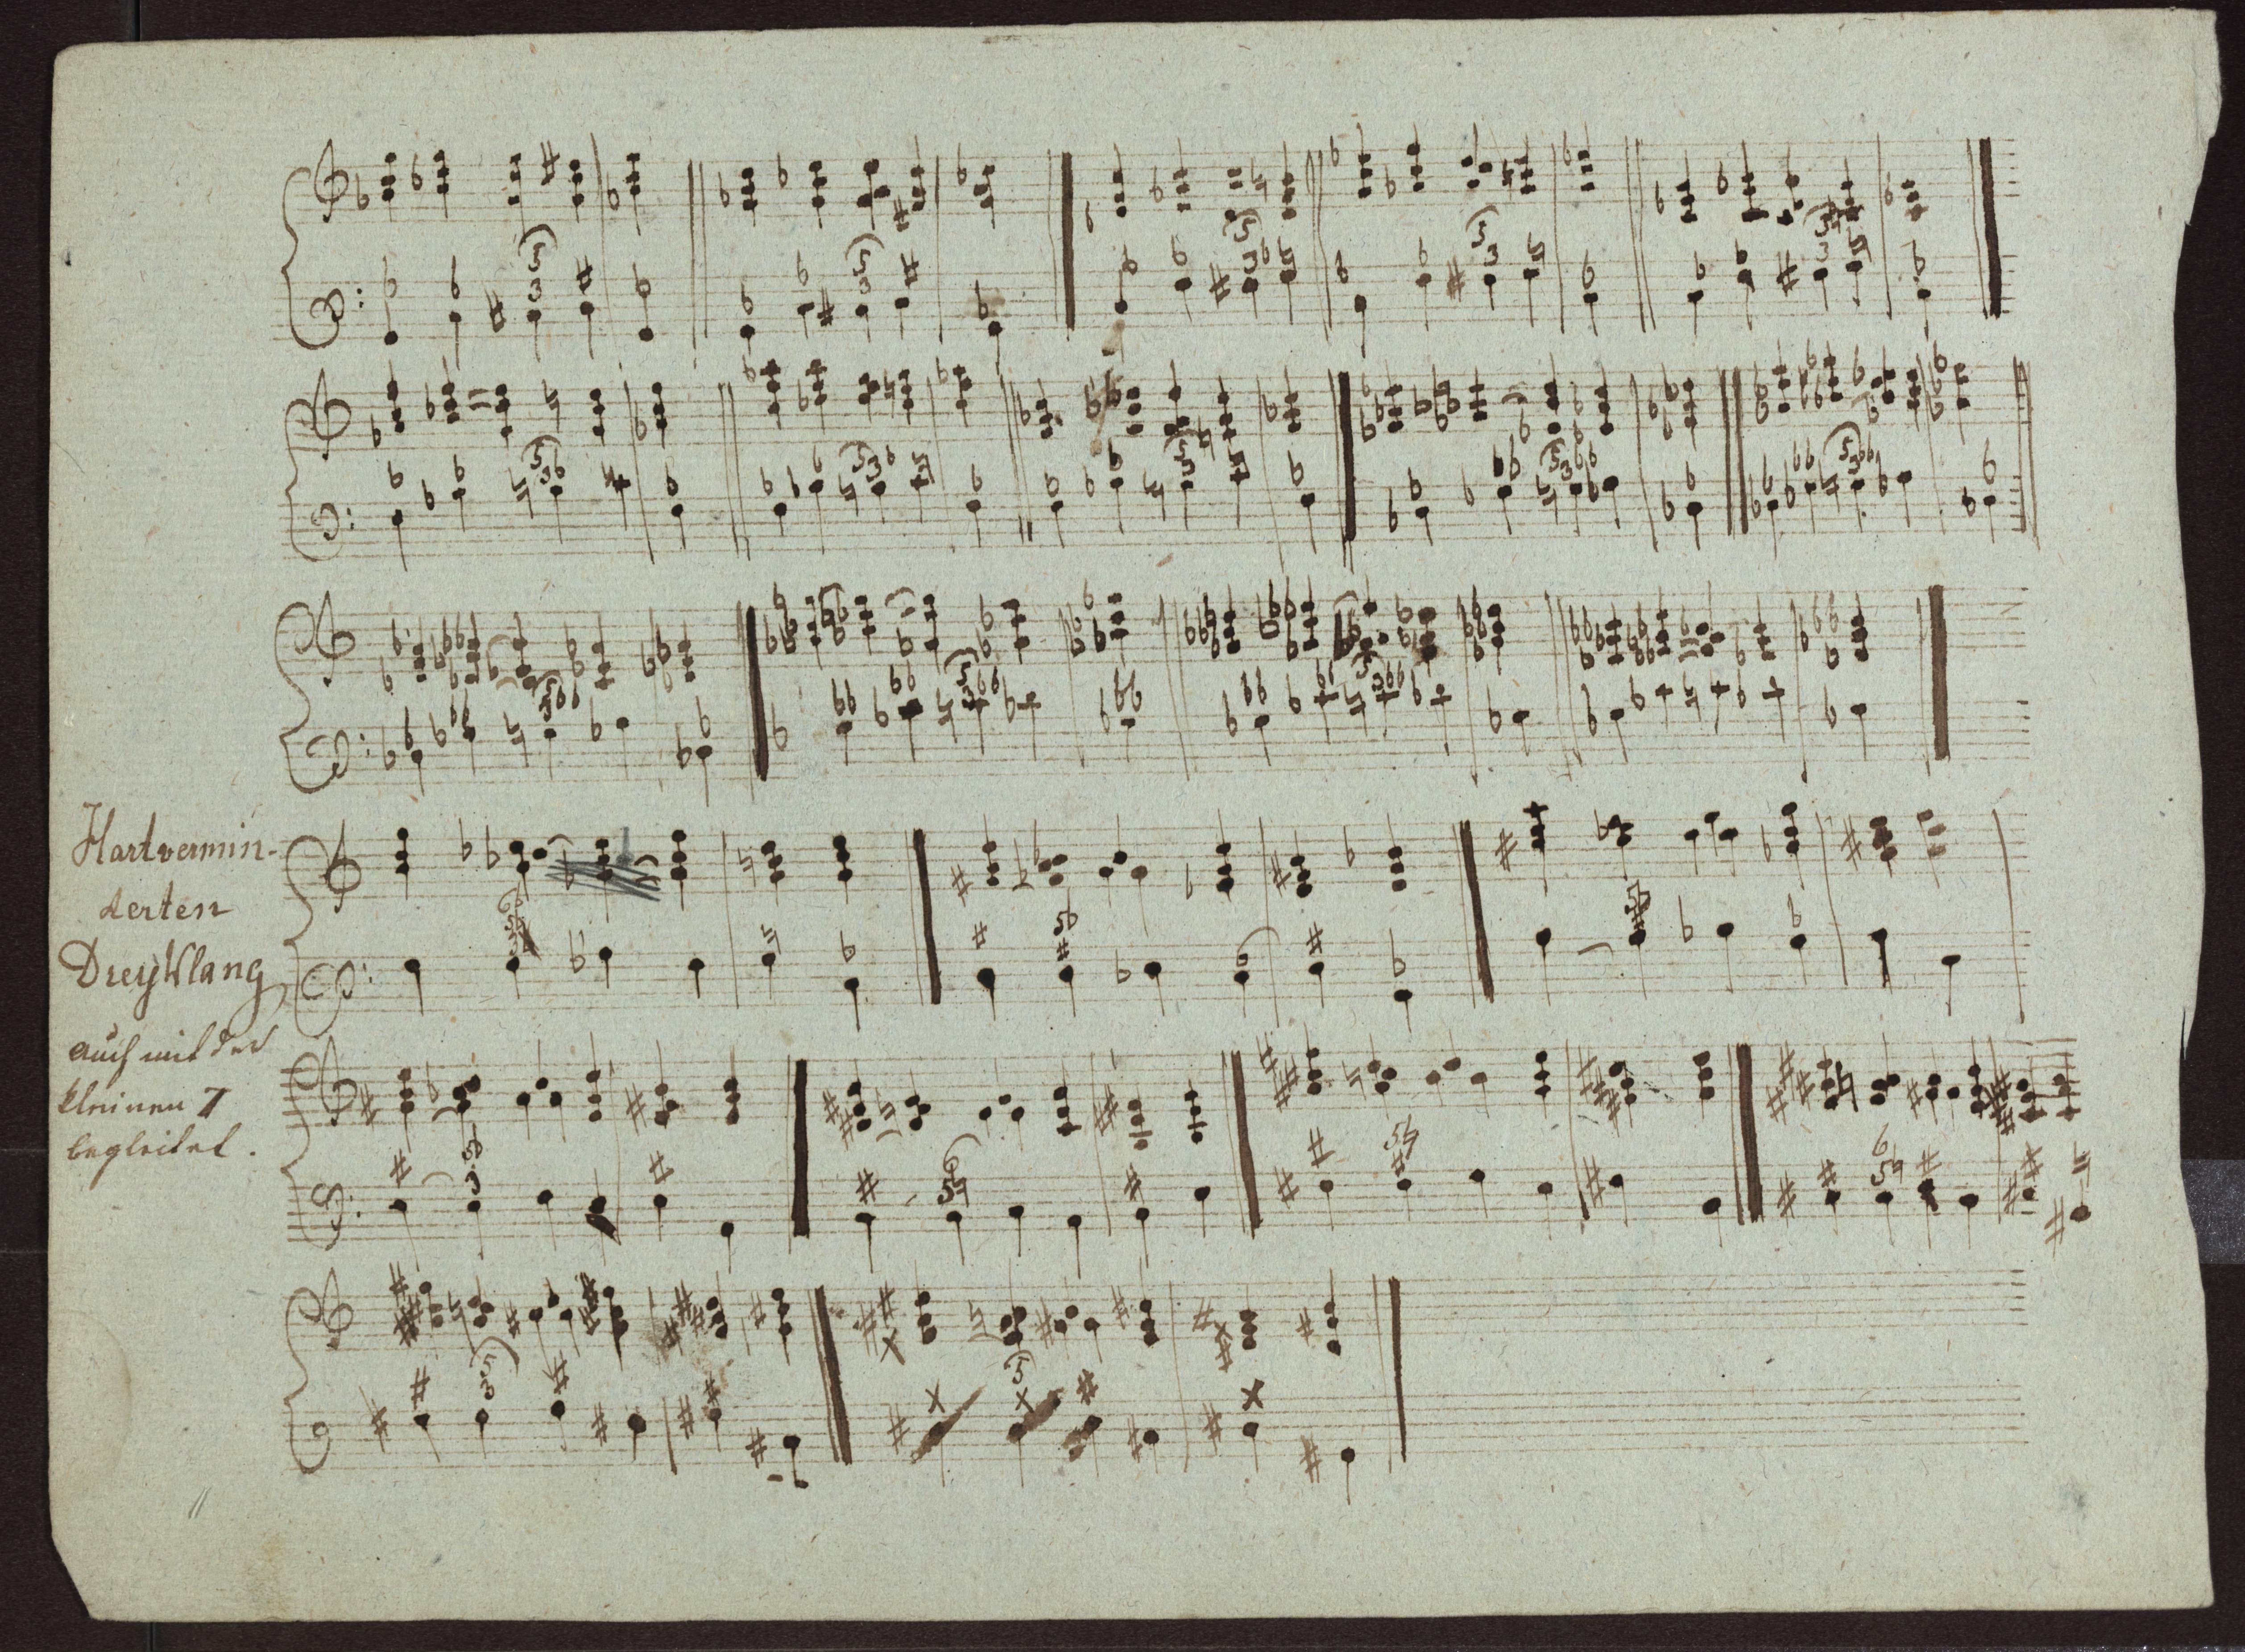 Hartvermin-
derten
DreyKlang
auch mit der
kleinen 7
begleitet.